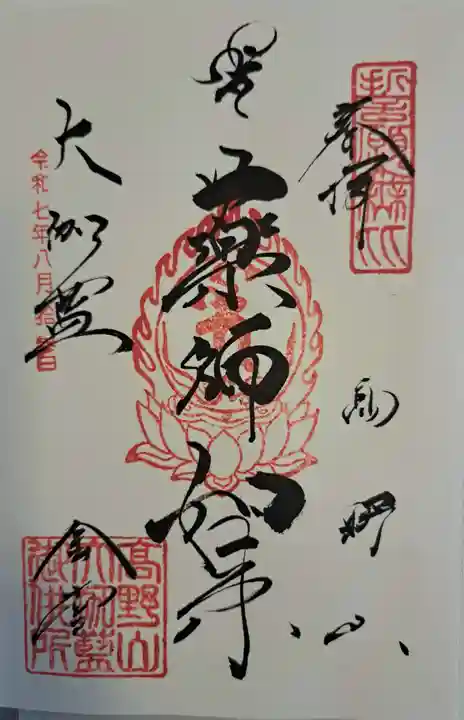 奉拝
高野山
薬師如来
大伽藍
金堂
令和七年八月拾日
高野山
大伽藍
御供所